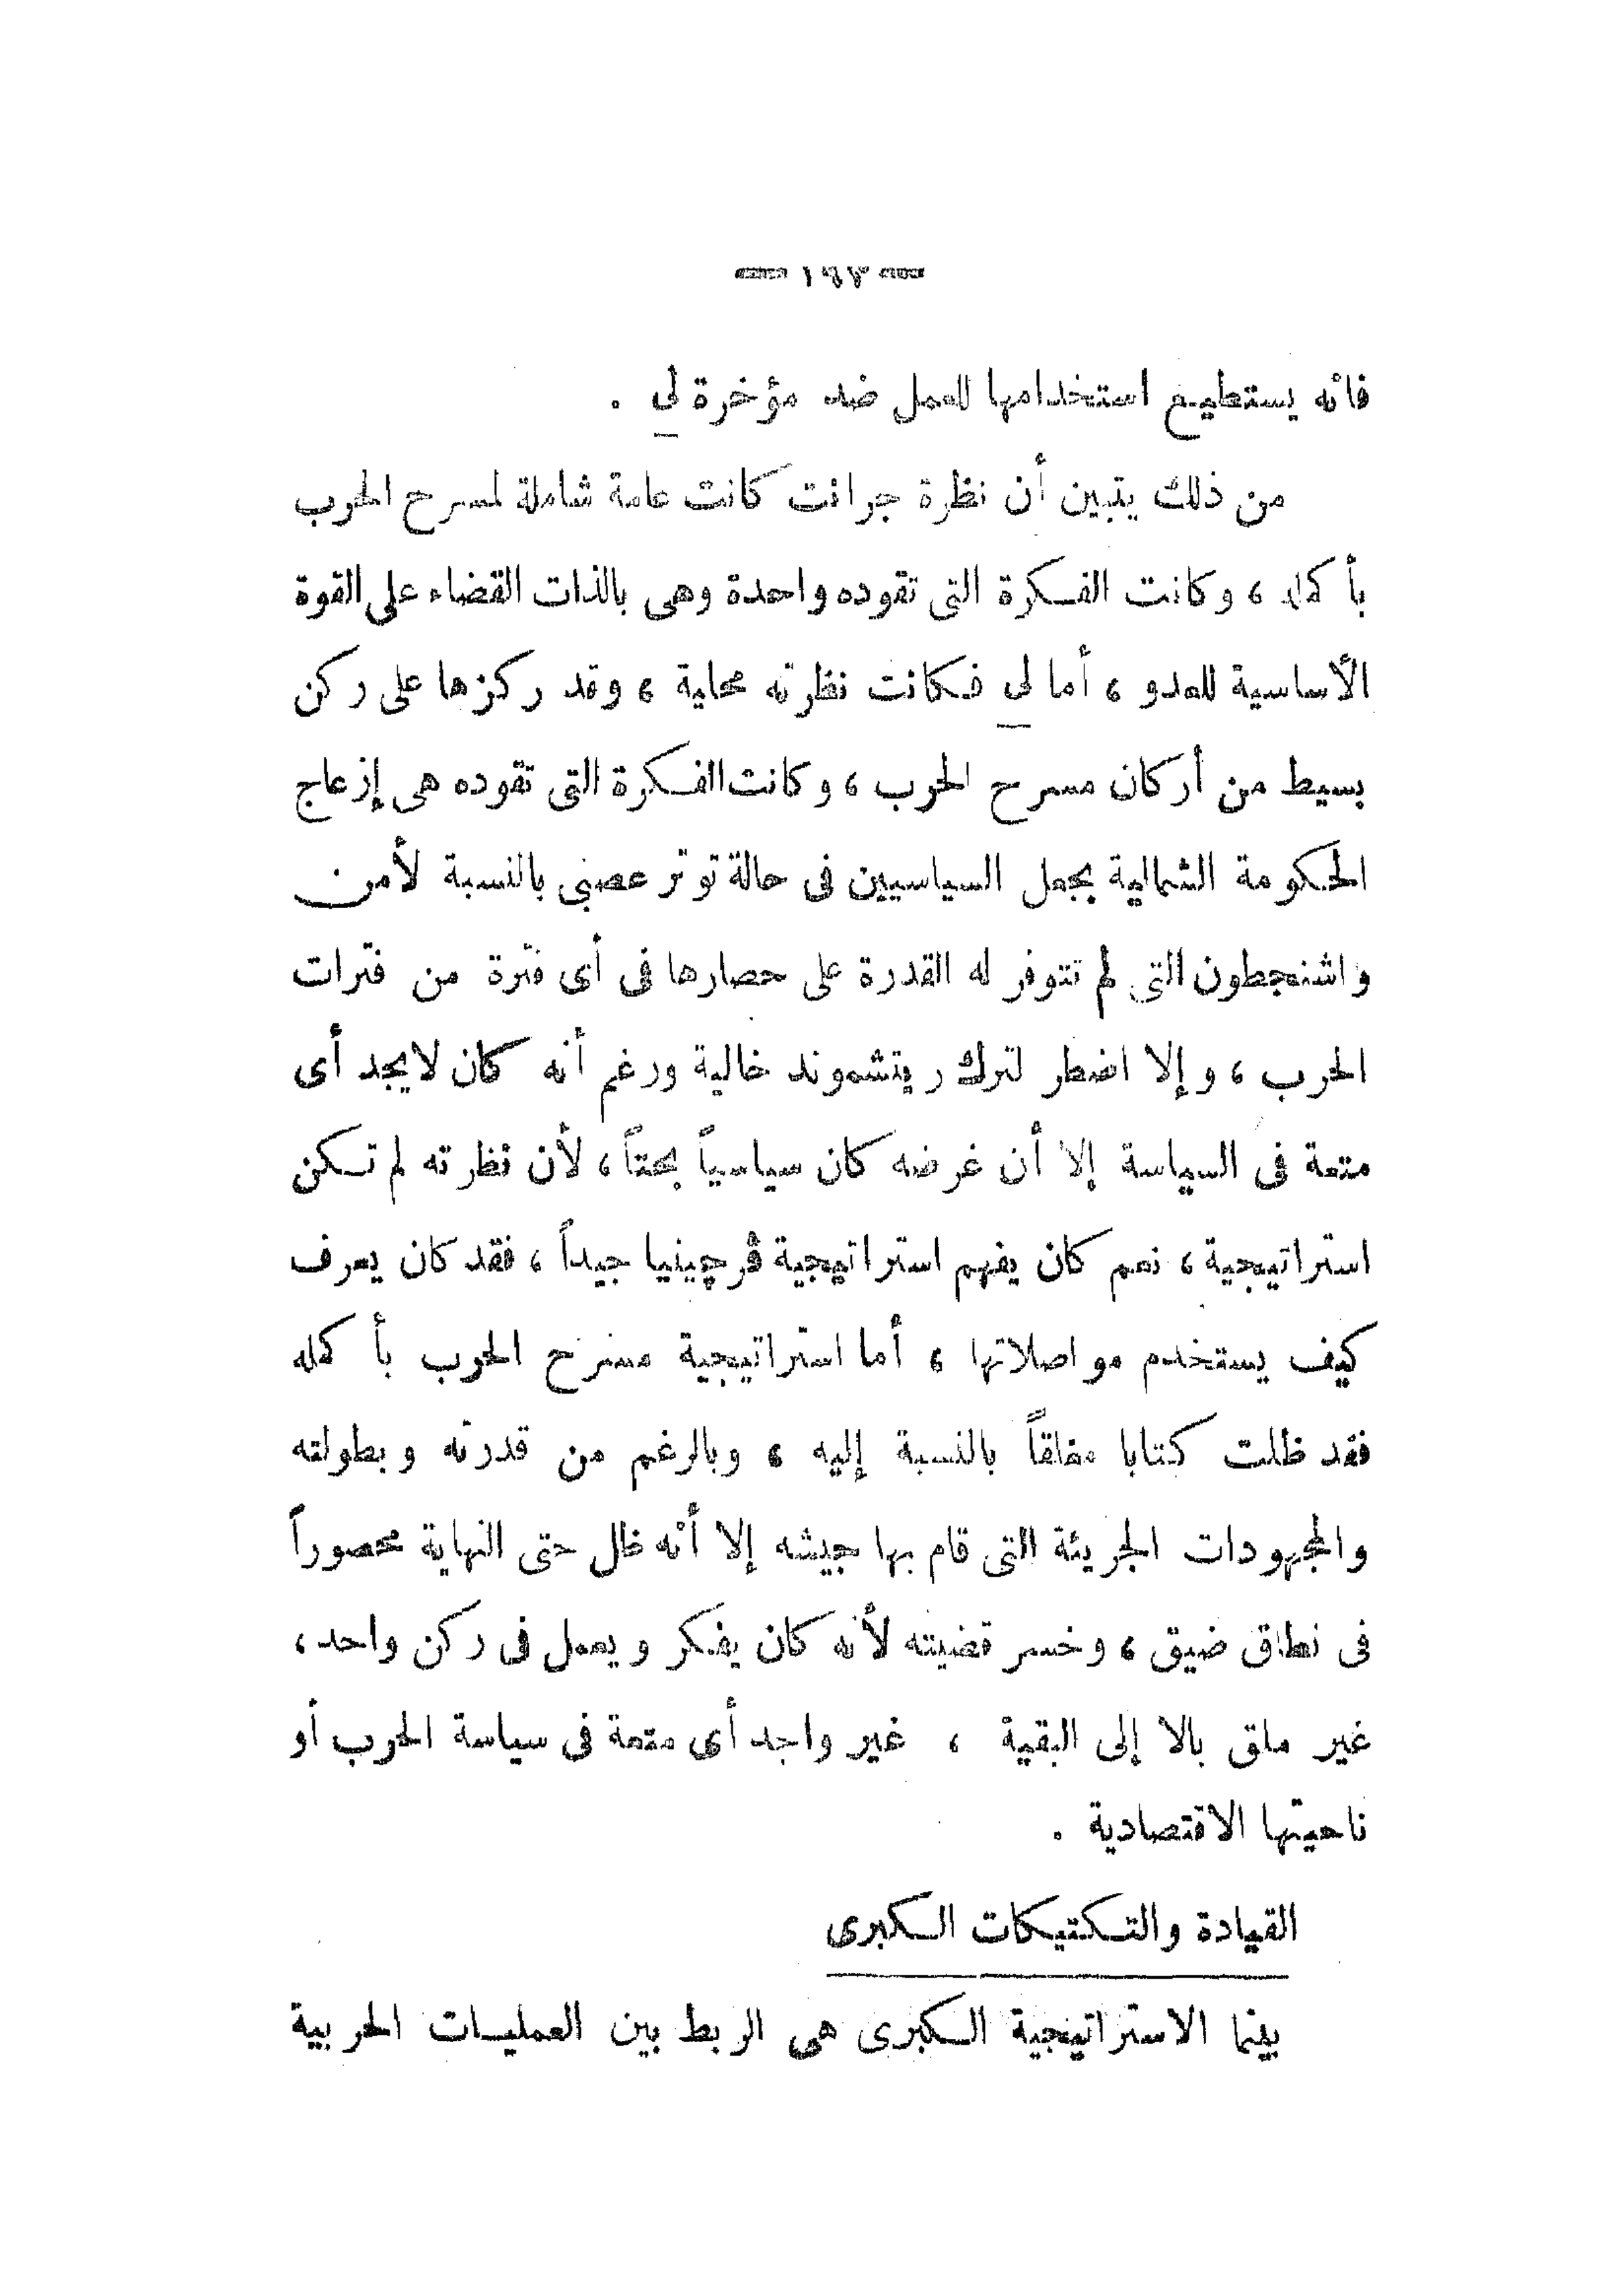 — ١٩٧ —
فانه يستطيع استخدامها للعمل ضد مؤخرة لى .
من ذلك يتبين أن نظرة جرانت كانت عامة شاملة لمسرح الحرب
بأكمله ، وكانت الفكرة التى تقوده واحدة وهى بالذات القضاء على القوة
الأساسية للعدو ، أما لى فكانت نظرته محلية ، وقد ركزها على ركن
بسيط من أركان مسرح الحرب ، وكانت الفكرة التى تقوده هى إزعاج
الحكومة الشمالية بجعل السياسيين فى حالة توتر عصبى بالنسبة لأمن
واشنجطون التى لم تتوفر له القدرة على حصارها فى أى فترة من فترات
الحرب ، وإلا اضطر لترك ريتشموند خالية ورغم أنه كان لايجد أى
متعة فى السياسة إلا أن غرضه كان سياسياً بحتاً ، لأن نظرته لم تكن
استراتيجية ، نعم كان يفهم استراتيجية ڤرچينيا جيداً ، فقد كان يعرف
كيف يستخدم مواصلاتها ، أما استراتيجية مسرح الحرب بأكمله
فقد ظلت كتابا مغلقاً بالنسبة إليه ، وبالرغم من قدرته وبطولته
والمجهودات الجريئة التى قام بها جيشه إلا أنه ظل حتى النهاية محصوراً
فى نطاق ضيق ، وخسر قضيته لأنه كان يفكر ويعمل فى ركن واحد ،
غير ملق بالا إلى البقية ، غير واجد أى متعة فى سياسة الحرب أو
ناحيتها الاقتصادية .
القيادة والتكتيكات الكبرى
بينما الاستراتيجية الكبرى هى الربط بين العمليات الحربية